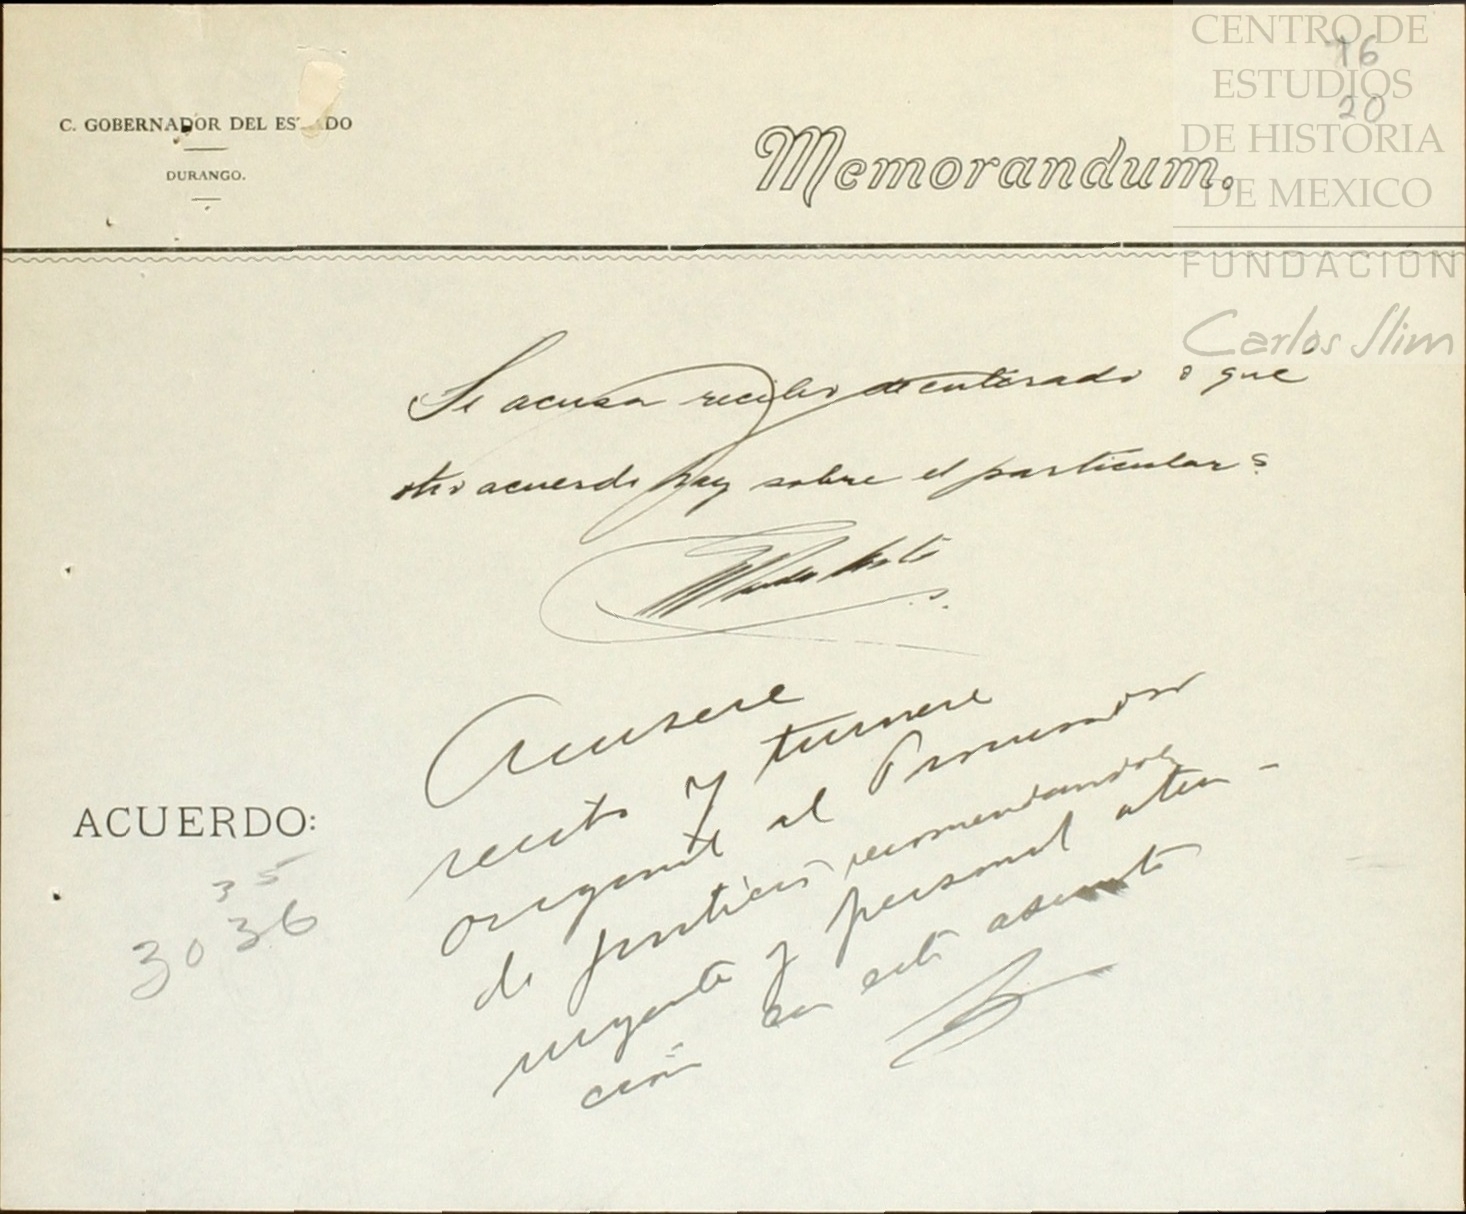 CENTRO DE
ESTUDIOS
DE HISTORIA
DE MEXICO
FUNDACIÓN
Carlos Slim
76
20
C. GOBERNADOR DEL ES DO
DURANGO.
Memorandum.
Se acusa recibo de enterado o que
otro acuerdo hay sobre el particular?
Acusese
recibo y turnese
original al Procurador
de Justicia recomendandole
urgente y personal aten-
ción en este asunto
ACUERDO:
35
3036